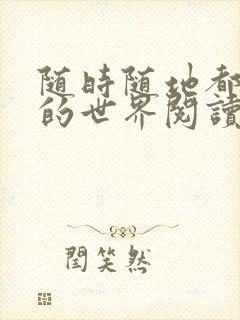 随時随地都
的世界閱讀
閆笑然